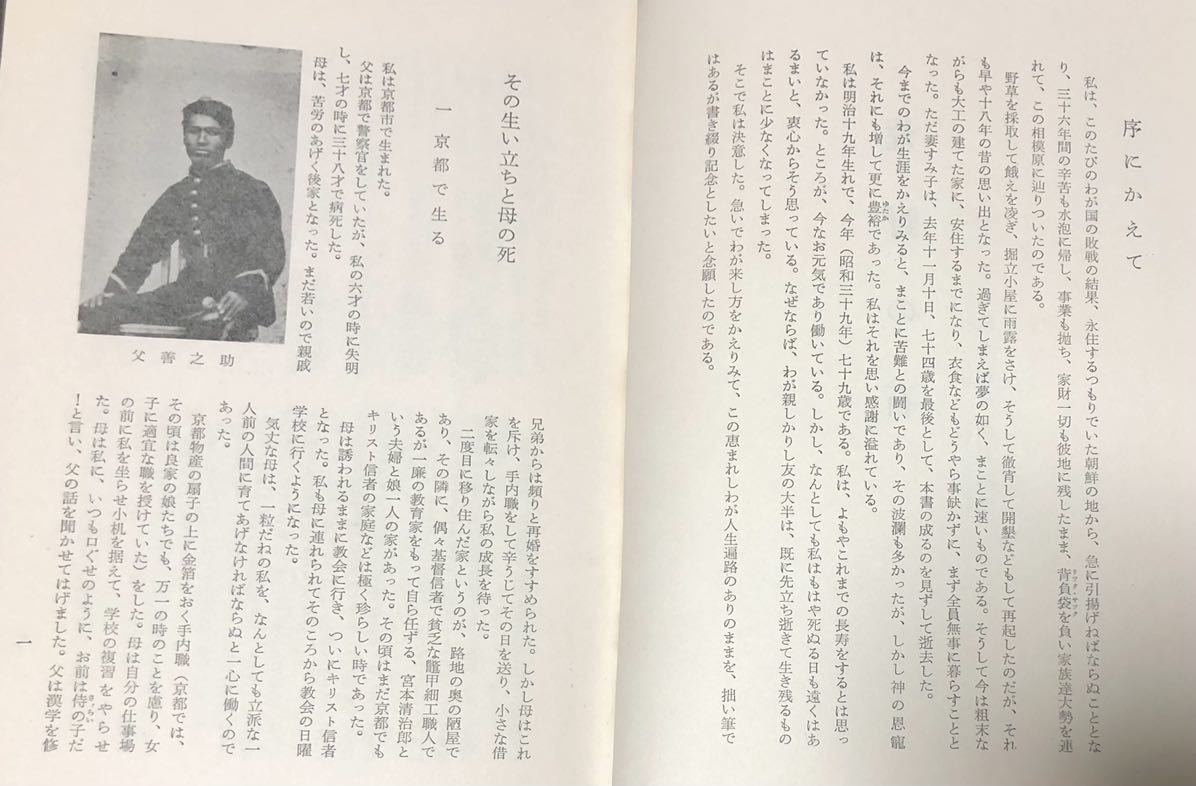 序にかえて
私は、このたびのわが国の敗戦の結果、永住するつもりでいた朝鮮の地から、急に引揚げねばならぬこととな
り、三十六年間の辛苦も水泡に帰し、事業も抛ち、家財一切も彼地に残したまま、背負袋を負い家族達大勢を連
リツク・サツク
れて、この相模原に辿りついたのである。
野草を採取して餓えを凌ぎ、掘立小屋に雨露をさけ、そうして徹宵して開墾などもして再起したのだが、それ
も早や十八年の昔の思い出となった。過ぎてしまえば夢の如く、まことに速いものである。そうして今は粗末な
がらも大工の建てた家に、安住するまでになり、衣食などもどうやら事欠かずに、まず全員無事に暮らすことと
なった。ただ妻すみ子は、去年十一月十日、七十四歳を最後として、本書の成るのを見ずして逝去した。
今までのわが生涯をかえりみると、まことに苦難との闘いであり、その波瀾も多かったが、しかし神の恩寵
は、それにも増して更に豊裕であった。私はそれを思い感謝に溢れている。
ゆたか
私は明治十九年生れで、今年（昭和三十九年）七十九歳である。私は、よもやこれまでの長寿をするとは思っ
ていなかった。ところが、今なお元気であり働いている。しかし、なんとしても私はもはや死ぬる日も遠くはあ
るまいと、衷心からそう思っている。なぜならば、わが親しかりし友の大半は、既に先立ち逝きて生き残るもの
はまことに少なくなってしまった。
そこで私は決意した。急いでわが来し方をかえりみて、この恵まれしわが人生遍路のありのままを、拙い筆で
はあるが書き綴り記念としたいと念願したのである。
その生い立ちと母の死
一 京都で生る
私は京都市で生まれた。
父は京都で警察官をしていたが、私の六才の時に失明
し、七才の時に三十八才で病死した。
母は、苦労のあげく後家となった。まだ若いので親戚
父善之助
兄弟からは頻りと再婚をすすめられた。しかし母はこれ
を斥け、手内職をして辛うじてその日を送り、小さな借
家を転々しながら私の成長を待った。
二度目に移り住んだ家というのが、路地の奥の陋屋で
あり、その隣に、偶々基督信者で貧乏な鼈甲細工職人で
あるが一廉の教育家をもって自ら任ずる、宮本清治郎と
いう夫婦と娘一人の家があった。その頃はまだ京都でも
キリスト信者の家庭などは極く珍らしい時であった。
母は誘われるままに教会に行き、ついにキリスト信者
となった。私も母に連れられてそのころから教会の日曜
学校に行くようになった。
気丈な母は、一粒だねの私を、なんとしても立派な一
人前の人間に育てあげなければならぬと一心に働くので
あった。
京都物産の扇子の上に金箔をおく手内職（京都では、
その頃は良家の娘たちでも、万一の時のことを慮り、女
子に適宜な職を授けていた）をした。母は自分の仕事場
の前に私を坐らせ小机を据えて、学校の復習をやらせ
た。母は私に、いつも口ぐせのように、お前は侍の子だ
！と言い、父の話を聞かせてはげました。父は漢学を修
一